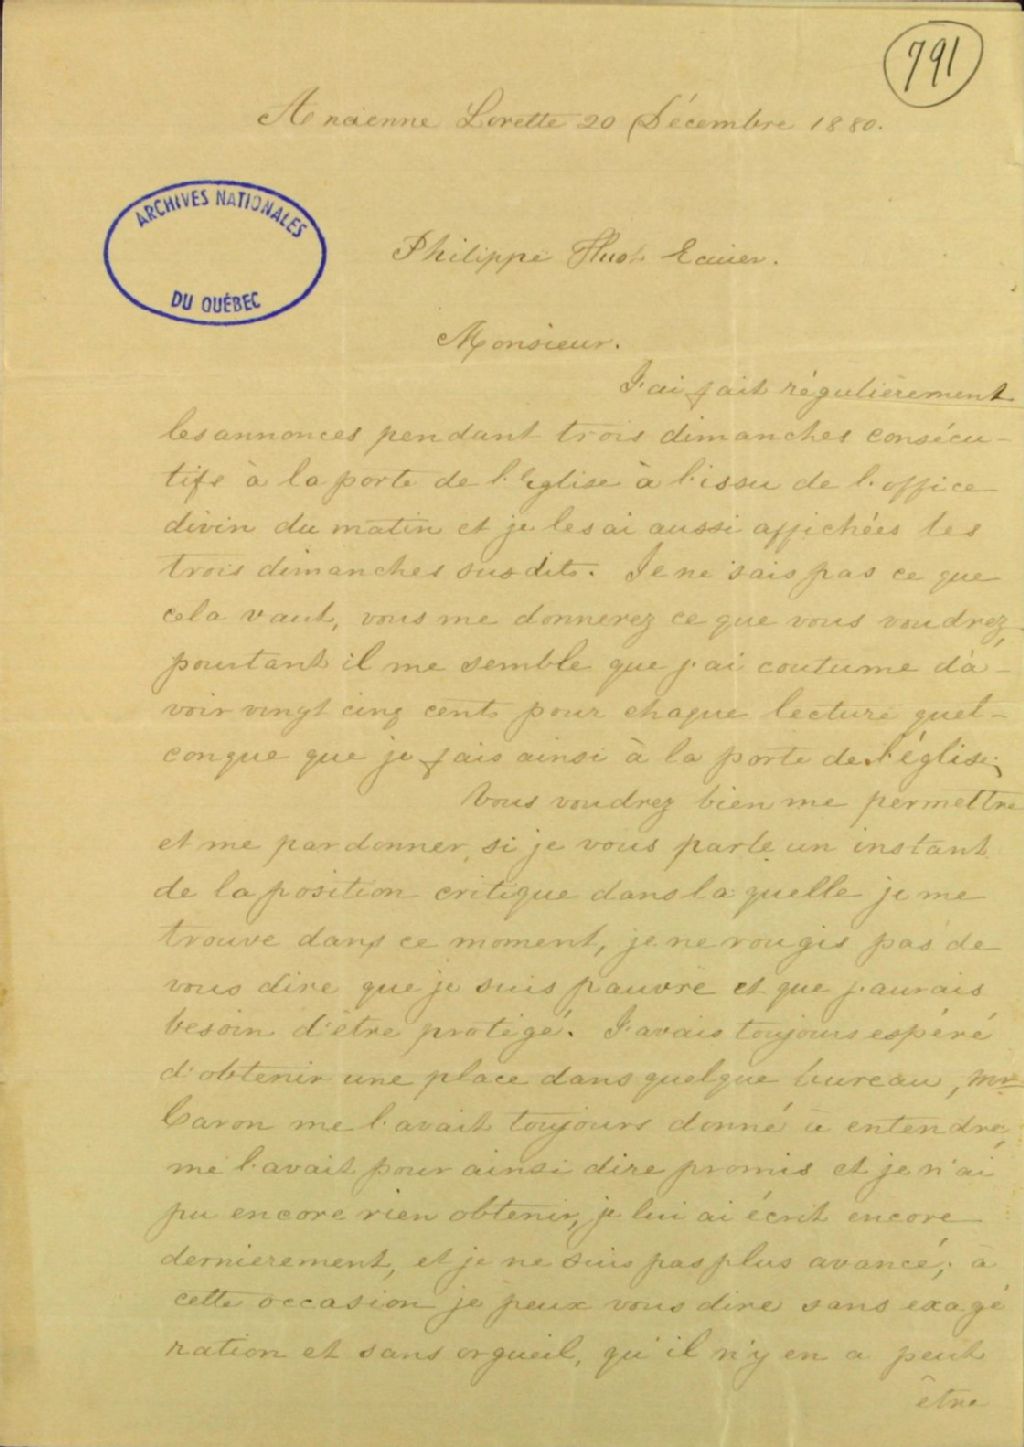 791
Ancienne Lorette 20 Décembre 1880.
ARCHIVES NATIONALES
DU QUÉBEC
Philippe Huot Ecuier.
Monsieur.
J'ai fait régulièrement
les annonces pendant trois dimanches consécu-
tifs à la porte de l'Eglise à l'issu de l'office
divin du matin et je les ai aussi affichées les
trois dimanches susdits. Je ne sais pas ce que
cela vaut, vous me donnerez ce que vous voudrez,
pourtant il me semble que j'ai coutume d'a-
voir vingt cinq cents pour chaque lecture quel-
conque que je fais ainsi à la porte de l'église;
Vous voudrez bien me permettre
et me pardonner, si je vous parle un instant
de la position critique dans laquelle je me
trouve dans ce moment, je ne rougis pas de
vous dire que je suis pauvre et que j'aurais
besoin d'être protégé. J'avais toujours espéré
d'obtenir une place dans quelque bureau, Mr
Caron me l'avait toujours donné à entendre,
me l'avait pour ainsi dire promis et je n'ai
pu encore rien obtenir, je lui ai écrit encore
dernierement, et je ne suis pas plus avancé; à
cette occasion je peux vous dire sans exagé
ration et sans orgueil, qu'il n'y en a peut
être